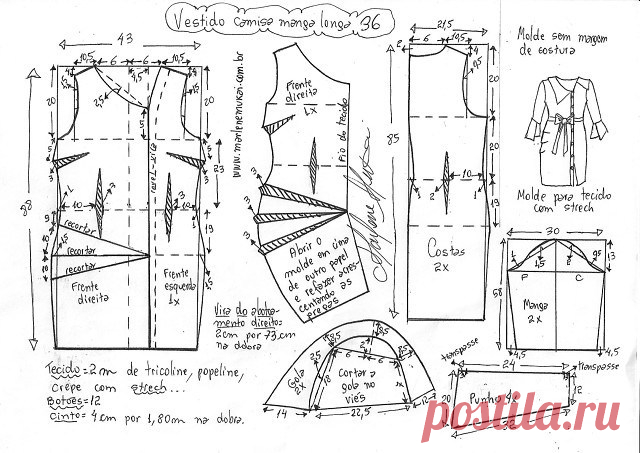 Vestido camisa manga longa 36
43
10,5 6 6 10,5
4 4,5 4
20
2,5
5
20
88
3
23
10
19
recortar
recortar
recortar
15
Frente direita
Frente esquerda
1x
www.marlenemukai.com.br
Frente direita
1x
Fio do tecido
3
Abrir o
molde em uma
de outro papel
e refazer acres-
centando as
pregas
Vira do aboto-
amento direito=
2cm por 73cm
na dobra
Marlene Mukai
21,5
2 6 6
4
20
85
20
2 10
19
15
Costas
2x
Molde sem margem
de costura
Molde para tecido
com strech
30
13
58
P C
Manga
2x
4,5 4,5
Tecido=2m de tricoline, popeline,
crepe com strech...
Botões=12
Cinto=4cm por 1,80m na dobra.
Gola
2x
Cortar a
gola no
viés
6 6
18
14 22,5 12
transpasse
24
transpasse
20
Punho 4x
12
32
postila.ru